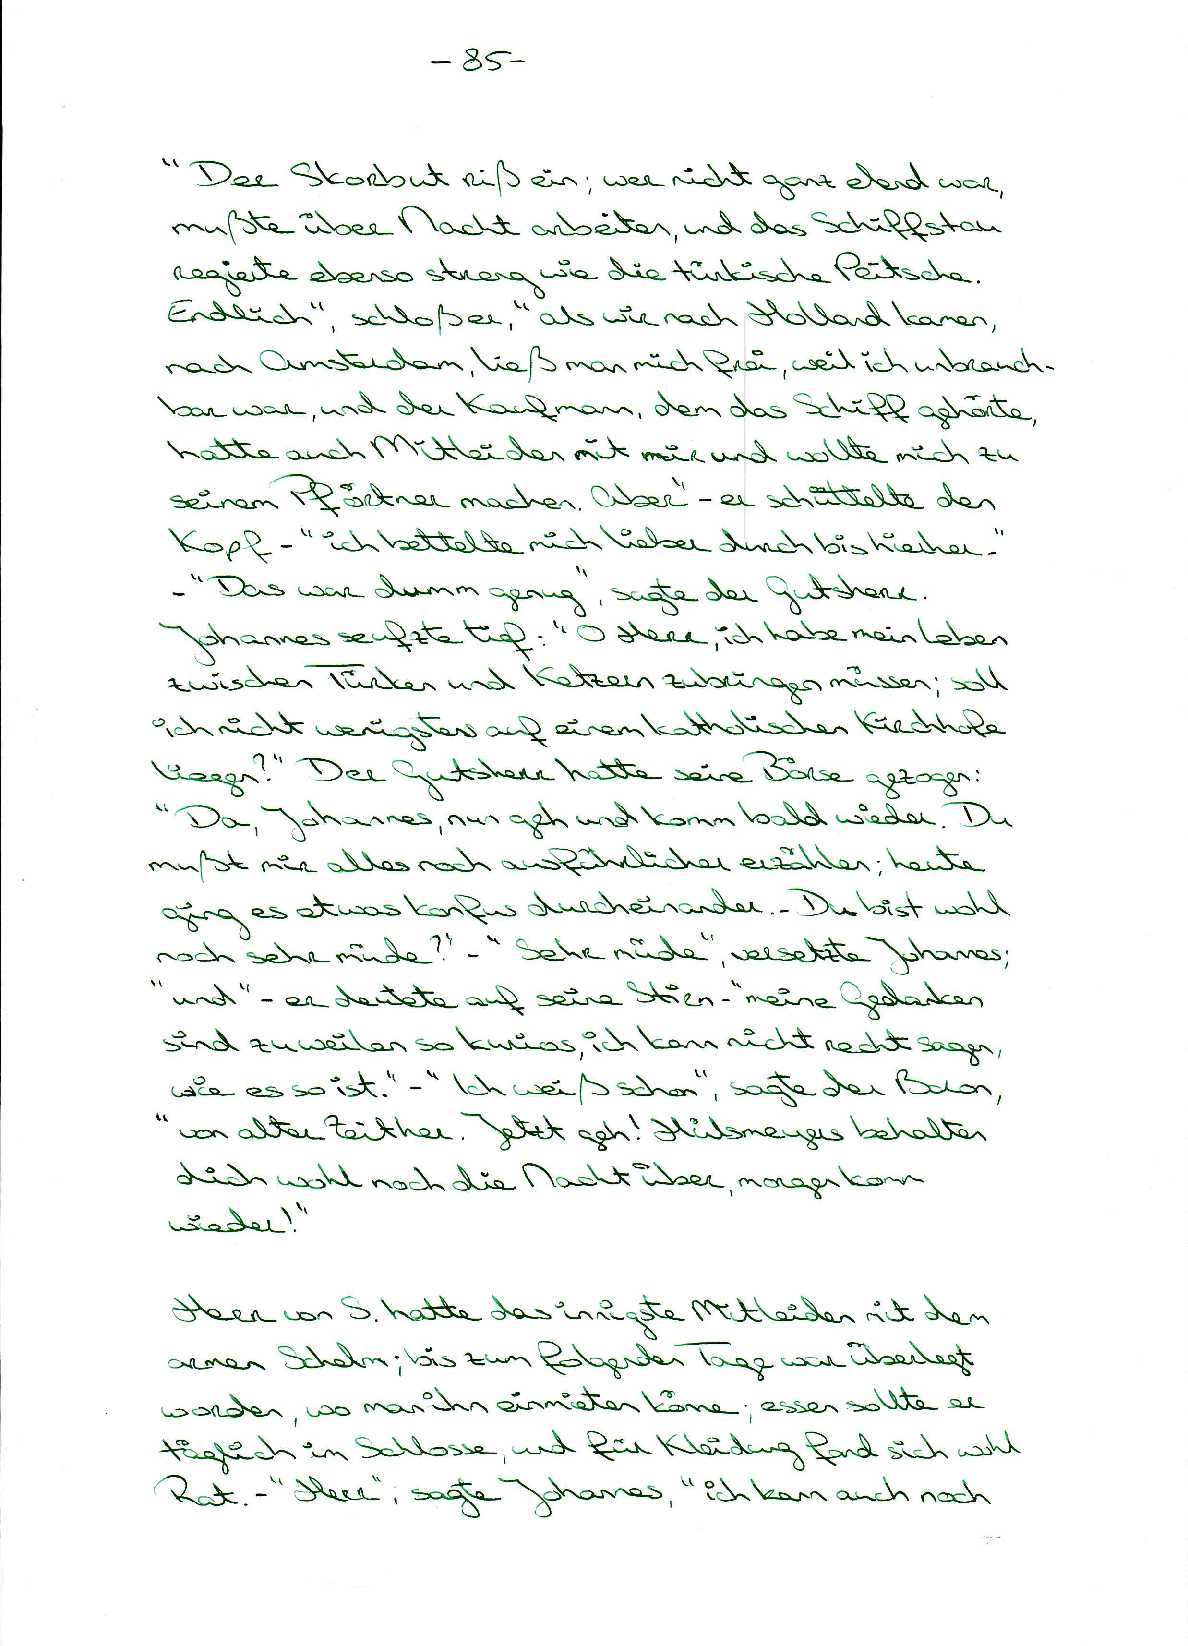 - 85 -
"Der Skorbut riß ein; wer nicht ganz elend war,
mußte über Macht arbeiten, und das Schiffstau
regierte ebenso streng wie die türkische Peitsche.
Endlich", schloß er, "als wir nach Holland kamen,
nach Amsterdam, ließ man mich frei, weil ich unbrauch-
bar war, und der Kaufmann, dem das Schiff gehörte,
hatte auch Mitleiden mit mir und wollte mich zu
seinem Pförtner machen. Aber" - er schüttelte den
Kopf - "ich bettelte mich lieber durch bis hieher."
- "Das war dumm genug", sagte der Gutsherr.
Johannes seufzte tief: "O Herr, ich habe mein Leben
zwischen Türken und Ketzern zubringen müssen; soll
ich nicht wenigstens auf einem katholischen Kirchhofe
liegen?" Der Gutsherr hatte seine Börse gezogen:
"Da, Johannes, nun geh und komm bald wieder. Du
mußt mir alles noch ausführlicher erzählen; heute
ging es etwas konfus durcheinander. - Du bist wohl
noch sehr müde?" - "Sehr müde", versetzte Johannes;
"und" - er deutete auf seine Stirn - "meine Gedanken
sind zuweilen so kurios, ich kann nicht recht sagen,
wie es so ist." - "Ich weiß schon", sagte der Baron,
"von alter Zeit her. Jetzt geh! Hülsmeyers behalten
dich wohl noch die Nacht über, morgen komm
wieder!"
Herr von S. hatte das innigste Mitleiden mit dem
armen Schelm; bis zum folgenden Tage war überlegt
worden, wo man ihn einmieten könne; essen sollte er
täglich im Schlosse, und für Kleidung fand sich wohl
Rat. - "Herr", sagte Johannes, "ich kann auch noch